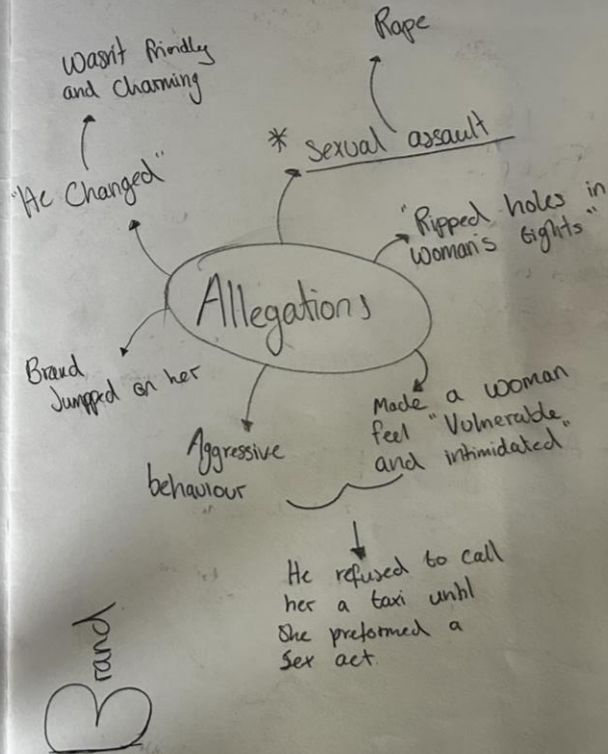 Rape
Wasn't friendly
and Charming
* Sexual assault
"He Changed"
"Ripped holes in
woman's tights"
Allegations
Brand
Jumpped on her
Made a woman
feel "Vulnerable
and intimidated"
Aggressive
behaviour
He refused to call
her a taxi until
She preformed a
Sex act
Brand